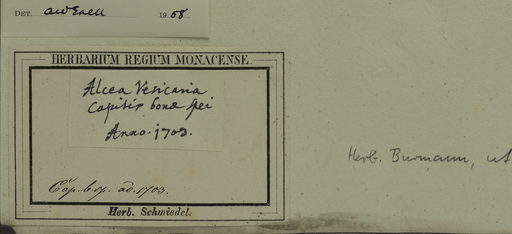 DET. AWExell 1958
HERBARIUM REGIUM MONACENSE.
Alcea Vesicaria
Capitis bonæ spei
Anno. 1703.
Cap. b. sp. ad. 1703.
Herb. Schmiedel.
Herb. Burmann,